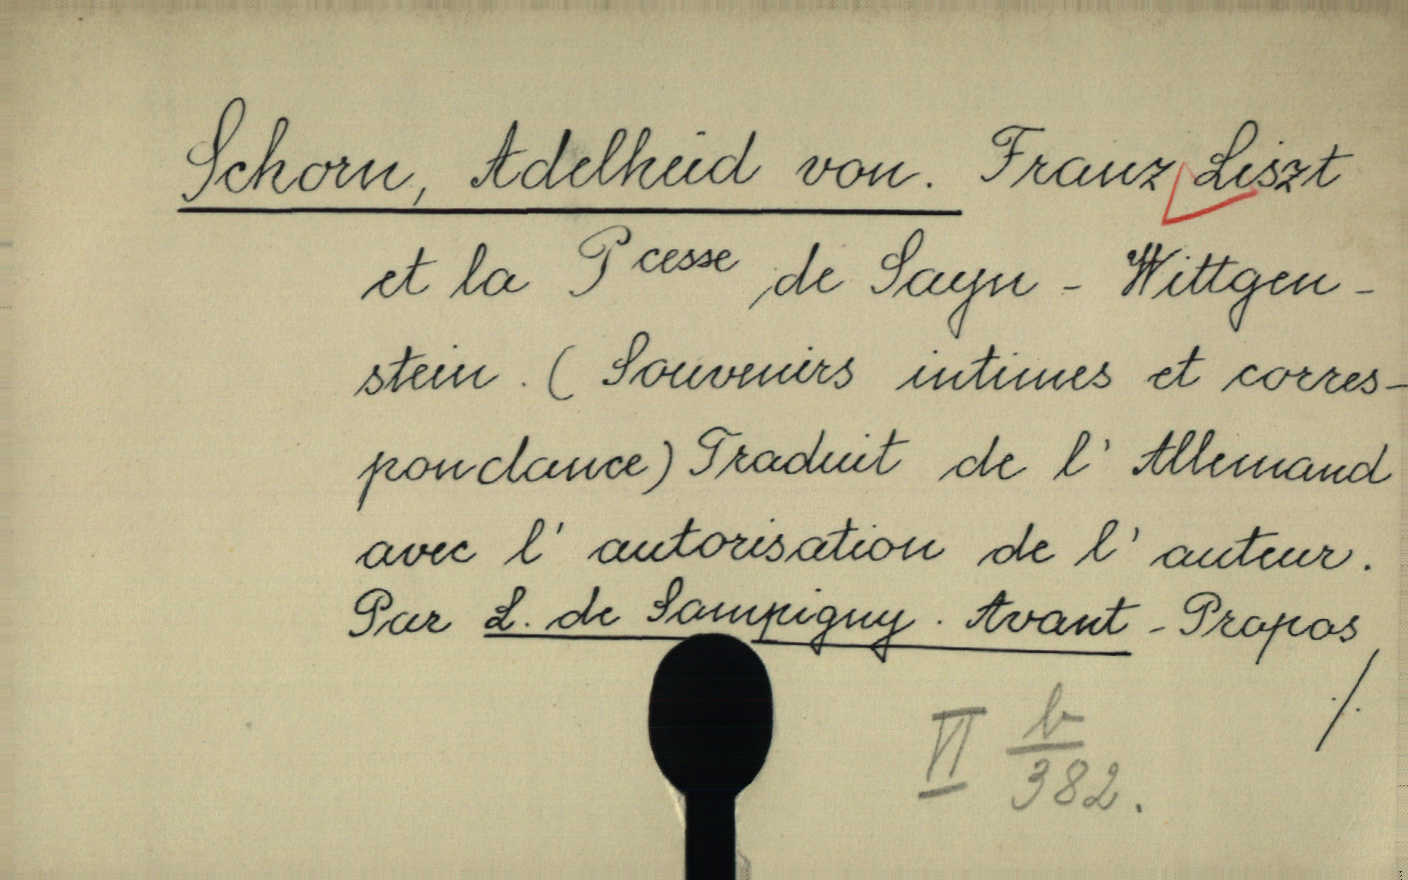 Schorn, Adelheid von. Franz Liszt
et la Pcesse de Sayn - Wittgen -
stein. (Souvenirs intimes et corres-
pondance) Traduit de l' Allemand
avec l' autorisation de l' auteur.
Par L. de Sampigny. Avant - Propos
./.
VI b/382.